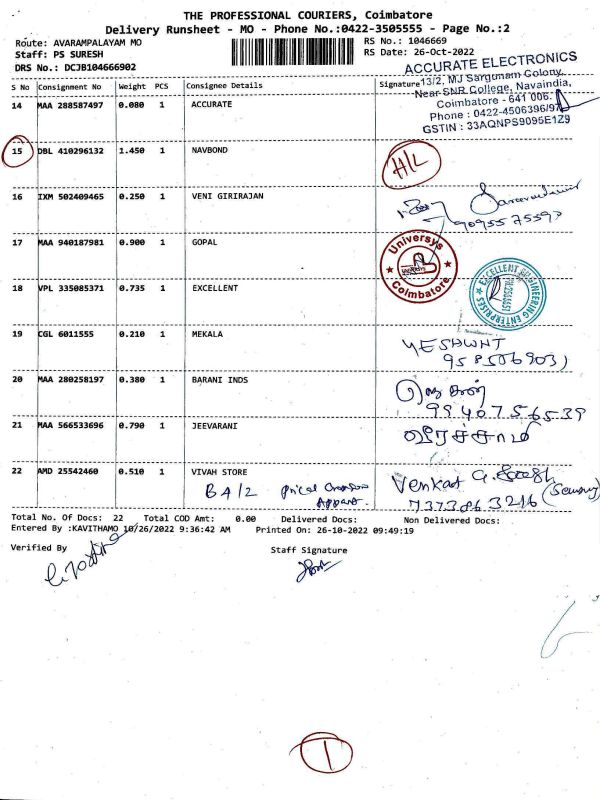 THE PROFESSIONAL COURIERS, Coimbatore
Delivery Runsheet - MO - Phone No.:0422-3505555 - Page No.:2
Route: AVARAMPALAYAM MO
RS No.: 1046669
Staff: PS SURESH
RS Date: 26-Oct-2022
DRS No.: DCJB104666902
ACCURATE ELECTRONICS
13/2, MJ Sargunam Colony,
Near SNR College, Navaindia,
Coimbatore - 641 006.
Phone : 0422-4506396/97
GSTIN : 33AQNPS9095E1Z9
S No Consignment No Weight PCS Consignee Details Signature
14 MAA 288587497 0.080 1 ACCURATE
15 DBL 410296132 1.450 1 NAVBOND H/L
16 IXM 502409465 0.250 1 VENI GIRIRAJAN
17 MAA 940187981 0.900 1 GOPAL
Universys
Coimbatore
18 VPL 335085371 0.735 1 EXCELLENT
EXCELLENT ENGINEERING ENTERPRISES
19 CGL 6011555 0.210 1 MEKALA
YESHWNT
20 MAA 280258197 0.380 1 BARANI INDS
9940756539
21 MAA 566533696 0.790 1 JEEVARANI
வீரச்சாமி
22 AMD 25542460 0.510 1 VIVAH STORE
Venkat G.
BA/2
7373863216
Total No. Of Docs: 22 Total COD Amt: 0.00 Delivered Docs: Non Delivered Docs:
Entered By :KAVITHAMO 10/26/2022 9:36:42 AM Printed On: 26-10-2022 09:49:19
Verified By Staff Signature
1